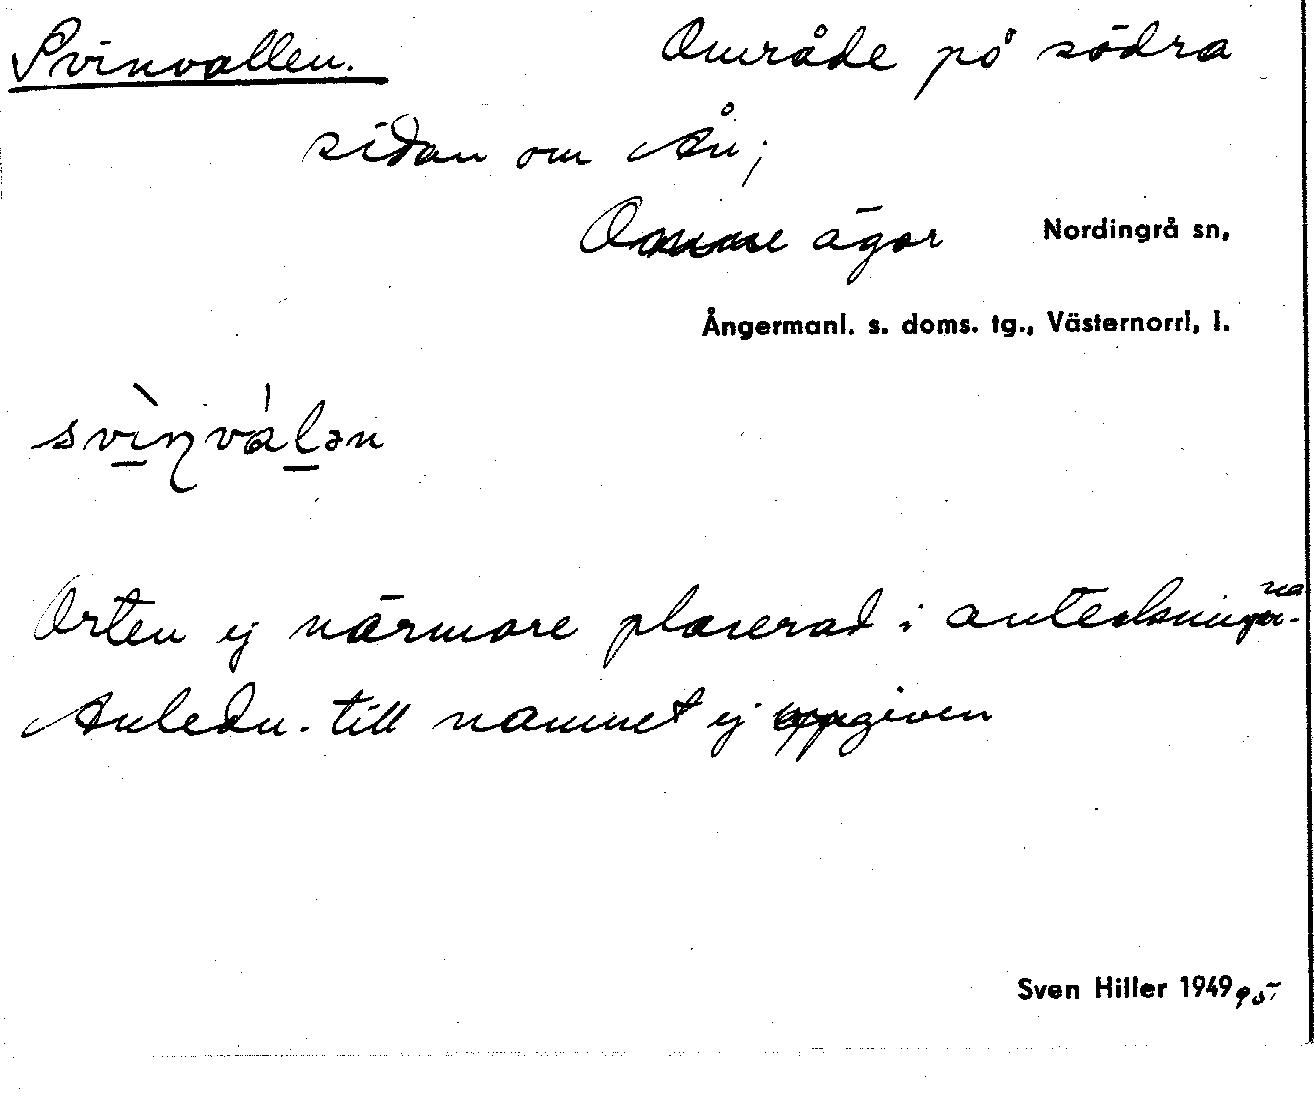 Svinvallen. Område på södra
sidan om Ån;
Omne ägor Nordingrå sn,
Ångermanl. s. doms. tg., Västernorrl. l.
svìṇválən
Orten ej närmare placerad i anteckningarna.
Anledn. till namnet ej uppgiven
Sven Hiller 1949